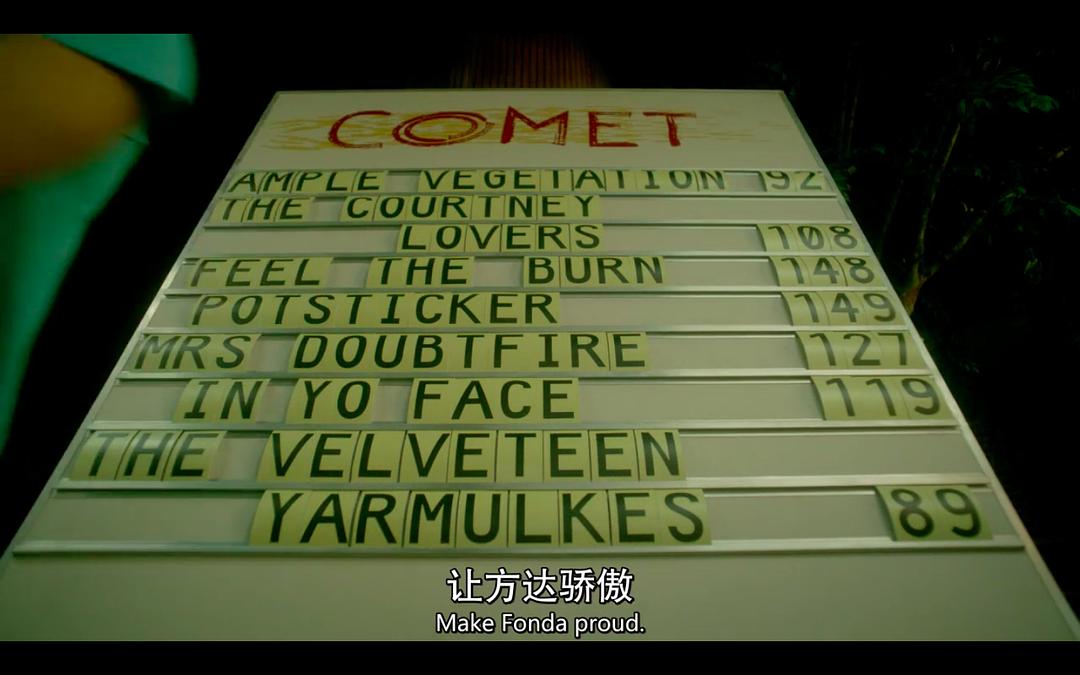 COMET
AMPLE VEGETATION 92
THE COURTNEY
LOVERS 108
FEEL THE BURN 148
POTSTICKER 149
MRS DOUBTFIRE 127
IN YO FACE 119
THE VELVETEEN
YARMULKES 89
让方达骄傲
Make Fonda proud.